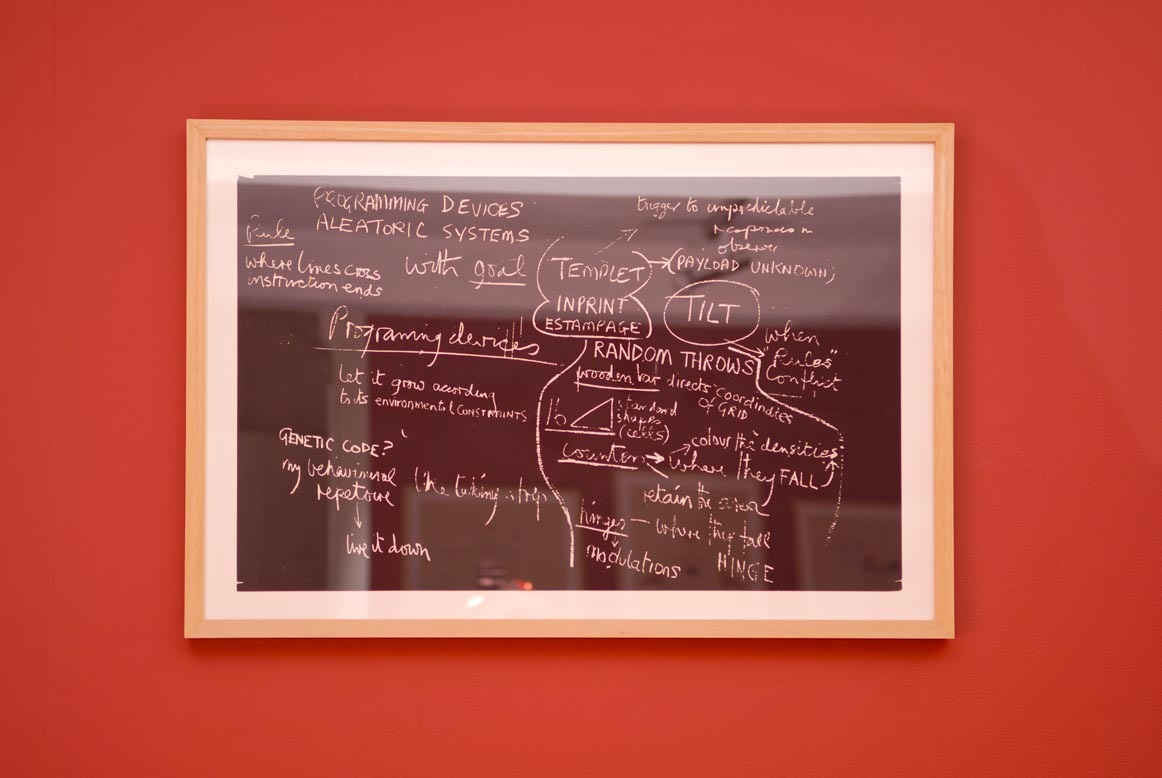 PROGRAMMING DEVICES
ALEATORIC SYSTEMS
with goal
Rule
where lines cross
instruction ends
Programing devices
Let it grow according
to its environmental CONSTRAINTS
GENETIC CODE?
my behavioural
repetoire
like taking a trip
live it down
trigger to unpredictable
responses in
observer
TEMPLET
(PAYLOAD UNKNOWN)
INPRINT
ESTAMPAGE
TILT
when
"Rules"
Conflict
RANDOM THROWS
wooden bar directs coordinates
OF GRID
standard
shapes
counters
colour the densities
where they FALL
retain the area
hinges — where they fall
modulations
HINGE